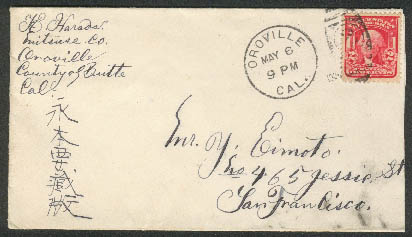 K. Harada
mitsuse co.
Oroville
County of Butte
Cal.
OROVILLE
MAY 6
9 PM
CAL.
Mr. Y. Eimoto.
No 465 Jessie St
San Francisco.
永本要蔵殿